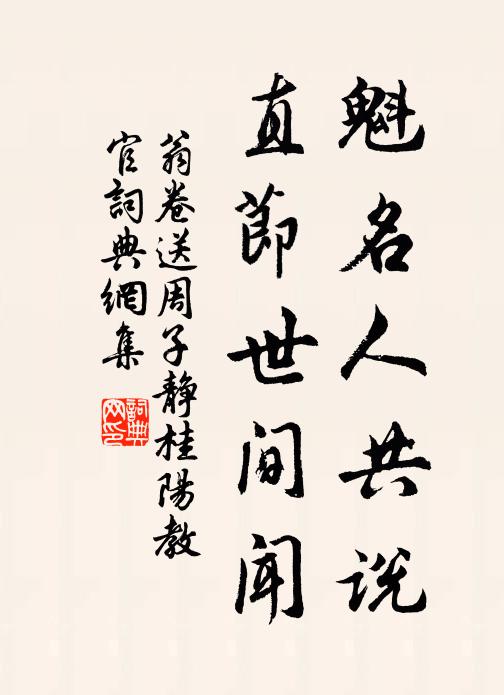 魁名人共説
直節世間聞
翁卷送周子靜桂陽教
官詞典網集
詞典網印